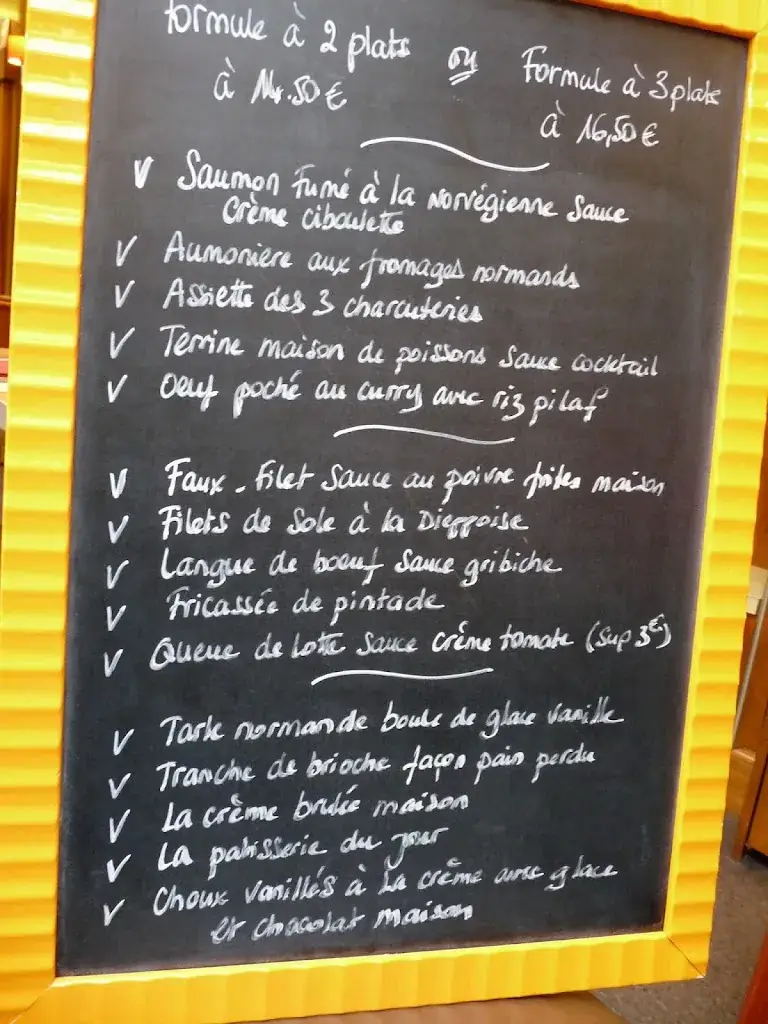 formule à 2 plats ou Formule à 3 plats
à 14.50 € à 16,50 €
V Saumon Fumé à la Norvégienne Sauce
Crème ciboulette
V Aumonière aux fromages normands
V Assiette des 3 charcuteries
V Terrine maison de poissons Sauce cocktail
V Oeuf poché au curry avec riz pilaf
V Faux-filet Sauce au poivre frites maison
V Filets de Sole à la Dieppoise
V Langue de boeuf Sauce gribiche
V Fricassée de pintade
V Queue de lotte Sauce crème tomate (sup 3€)
V Tarte normande boule de glace vanille
V Tranche de brioche façon pain perdu
V La crème brulée maison
V La patisserie du jour
V Choux vanillés à la crème avec glace
et chocolat maison